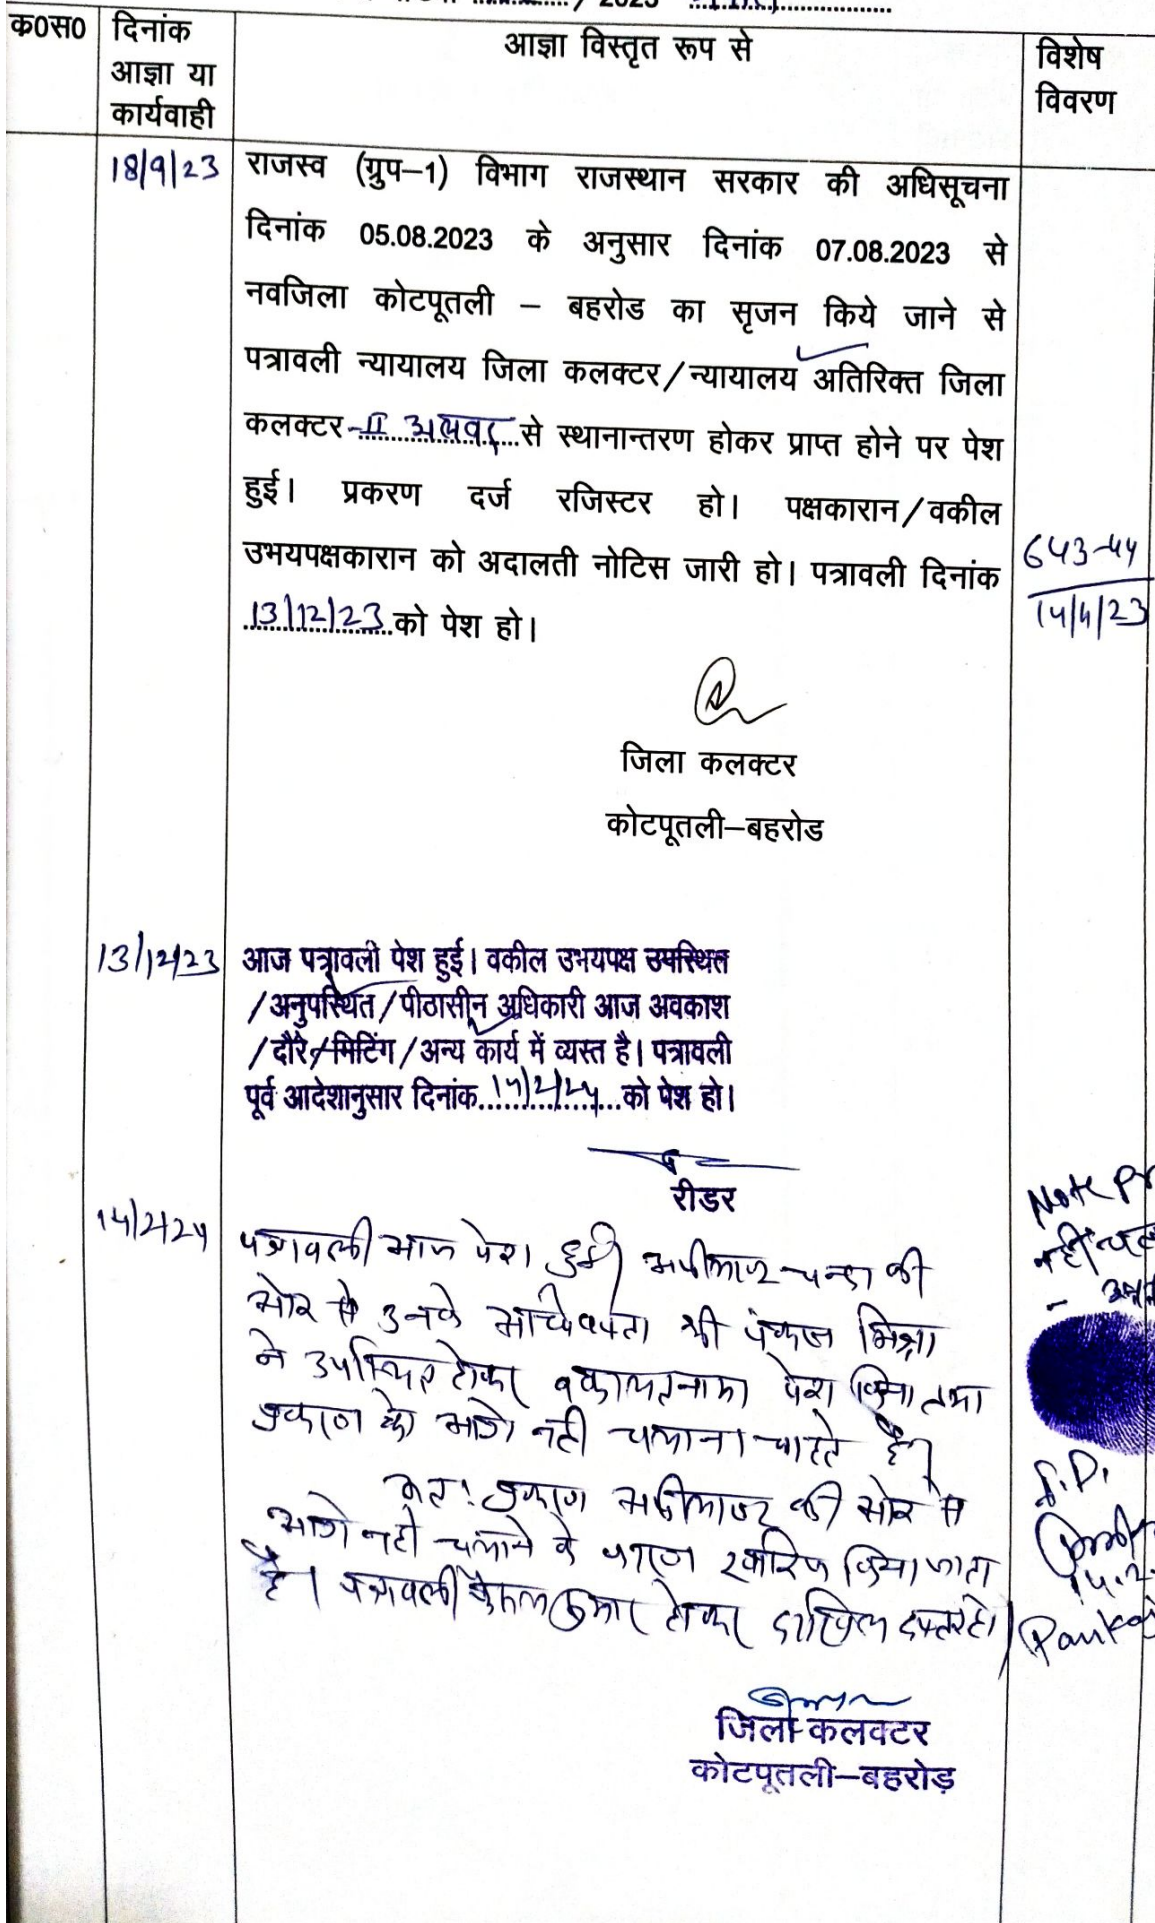 / 2023
क0स0
दिनांक
आज्ञा या
कार्यवाही
आज्ञा विस्तृत रूप से
विशेष
विवरण
18/9/23
राजस्व (ग्रुप–1) विभाग राजस्थान सरकार की अधिसूचना
दिनांक 05.08.2023 के अनुसार दिनांक 07.08.2023 से
नवजिला कोटपूतली – बहरोड का सृजन किये जाने से
पत्रावली न्यायालय जिला कलक्टर/न्यायालय अतिरिक्त जिला
कलक्टर-II अलवर से स्थानान्तरण होकर प्राप्त होने पर पेश
हुई। प्रकरण दर्ज रजिस्टर हो। पक्षकारान/वकील
उभयपक्षकारान को अदालती नोटिस जारी हो। पत्रावली दिनांक
13/12/23 को पेश हो।
643-44
जिला कलक्टर
कोटपूतली–बहरोड
13/12/23
आज पत्रावली पेश हुई। वकील उभयपक्ष उपस्थित
/अनुपस्थित/पीठासीन अधिकारी आज अवकाश
/दौरे/मिटिंग/अन्य कार्य में व्यस्त है। पत्रावली
पूर्व आदेशानुसार दिनांक 14/2/24 को पेश हो।
रीडर
14/2/24
पत्रावली आज पेश हुई। अपीलाण्ट चन्दा की
ओर से उनके अधिवक्ता श्री पंकज मिश्रा
ने उपस्थित होकर वकालतनामा पेश किया तथा
प्रकरण को आगे नहीं चलाना चाहते है।
अतः प्रकरण अपीलाण्ट की ओर से
आगे नहीं चलाने के कारण खारिज किया जाता
है। पत्रावली फैसल शुमार होकर दाखिल दफ्तर हो।
Note Pr
नहीं
I.D.
14.2.
Pankaj
जिला कलक्टर
कोटपूतली–बहरोड़